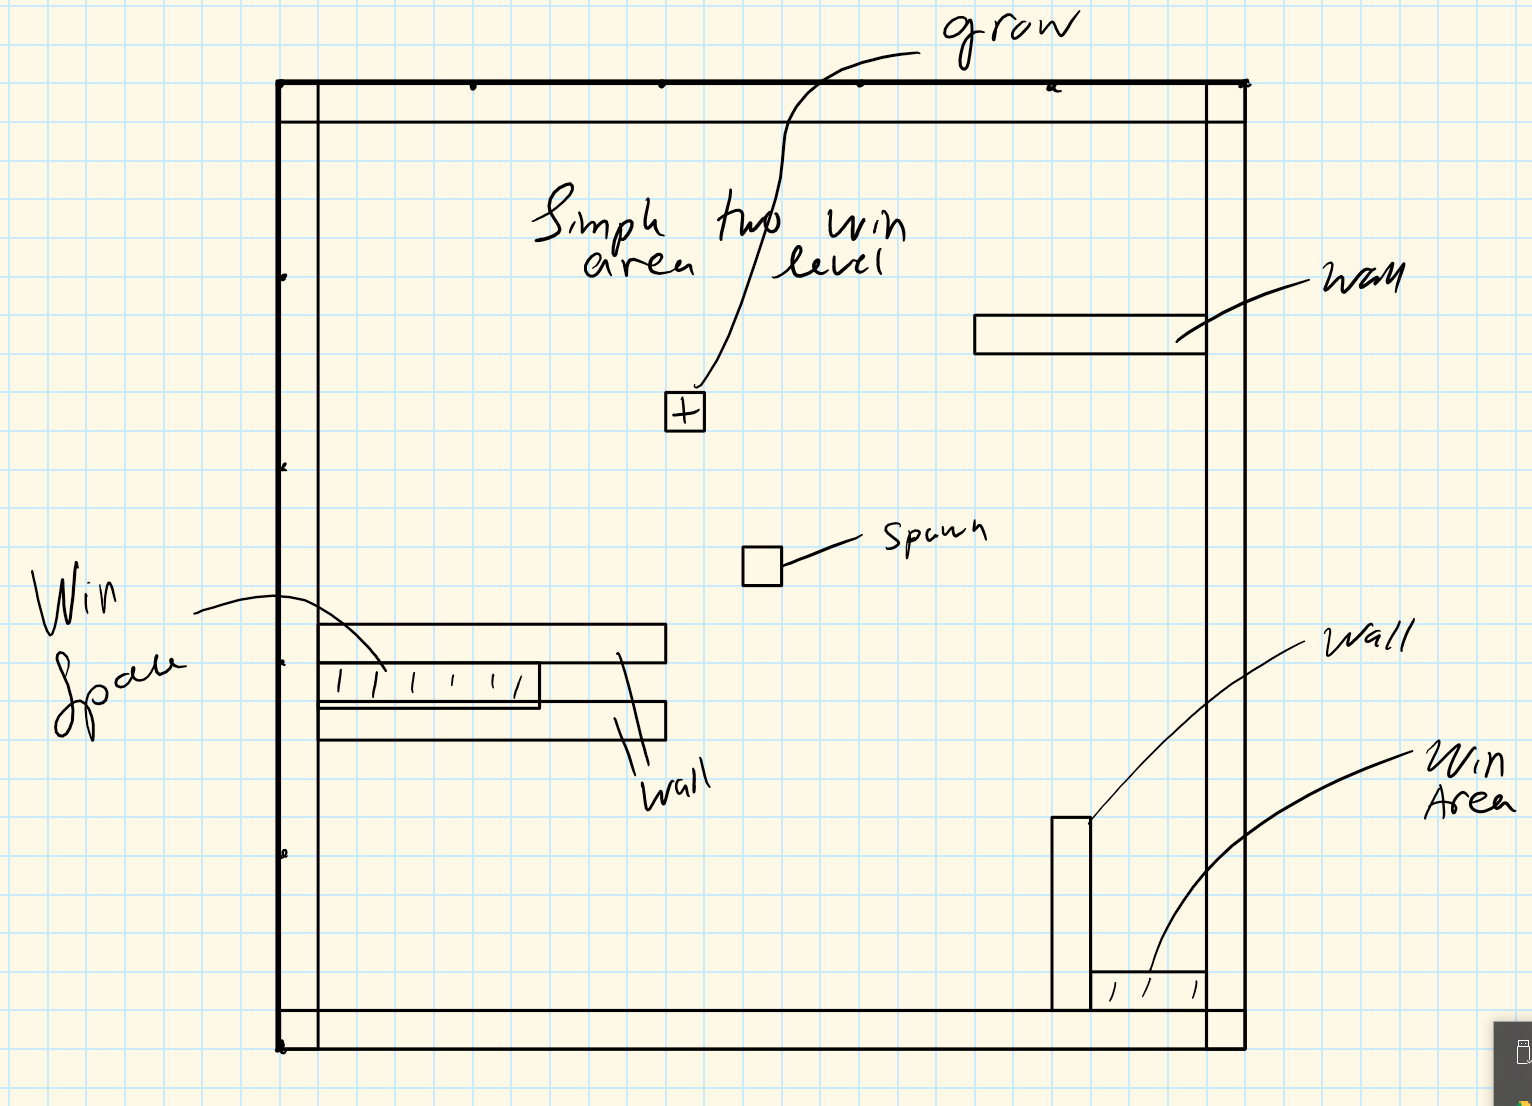 grow
Simple two win
area level
wall
+
spawn
Win
Space
wall
wall
Win
Area